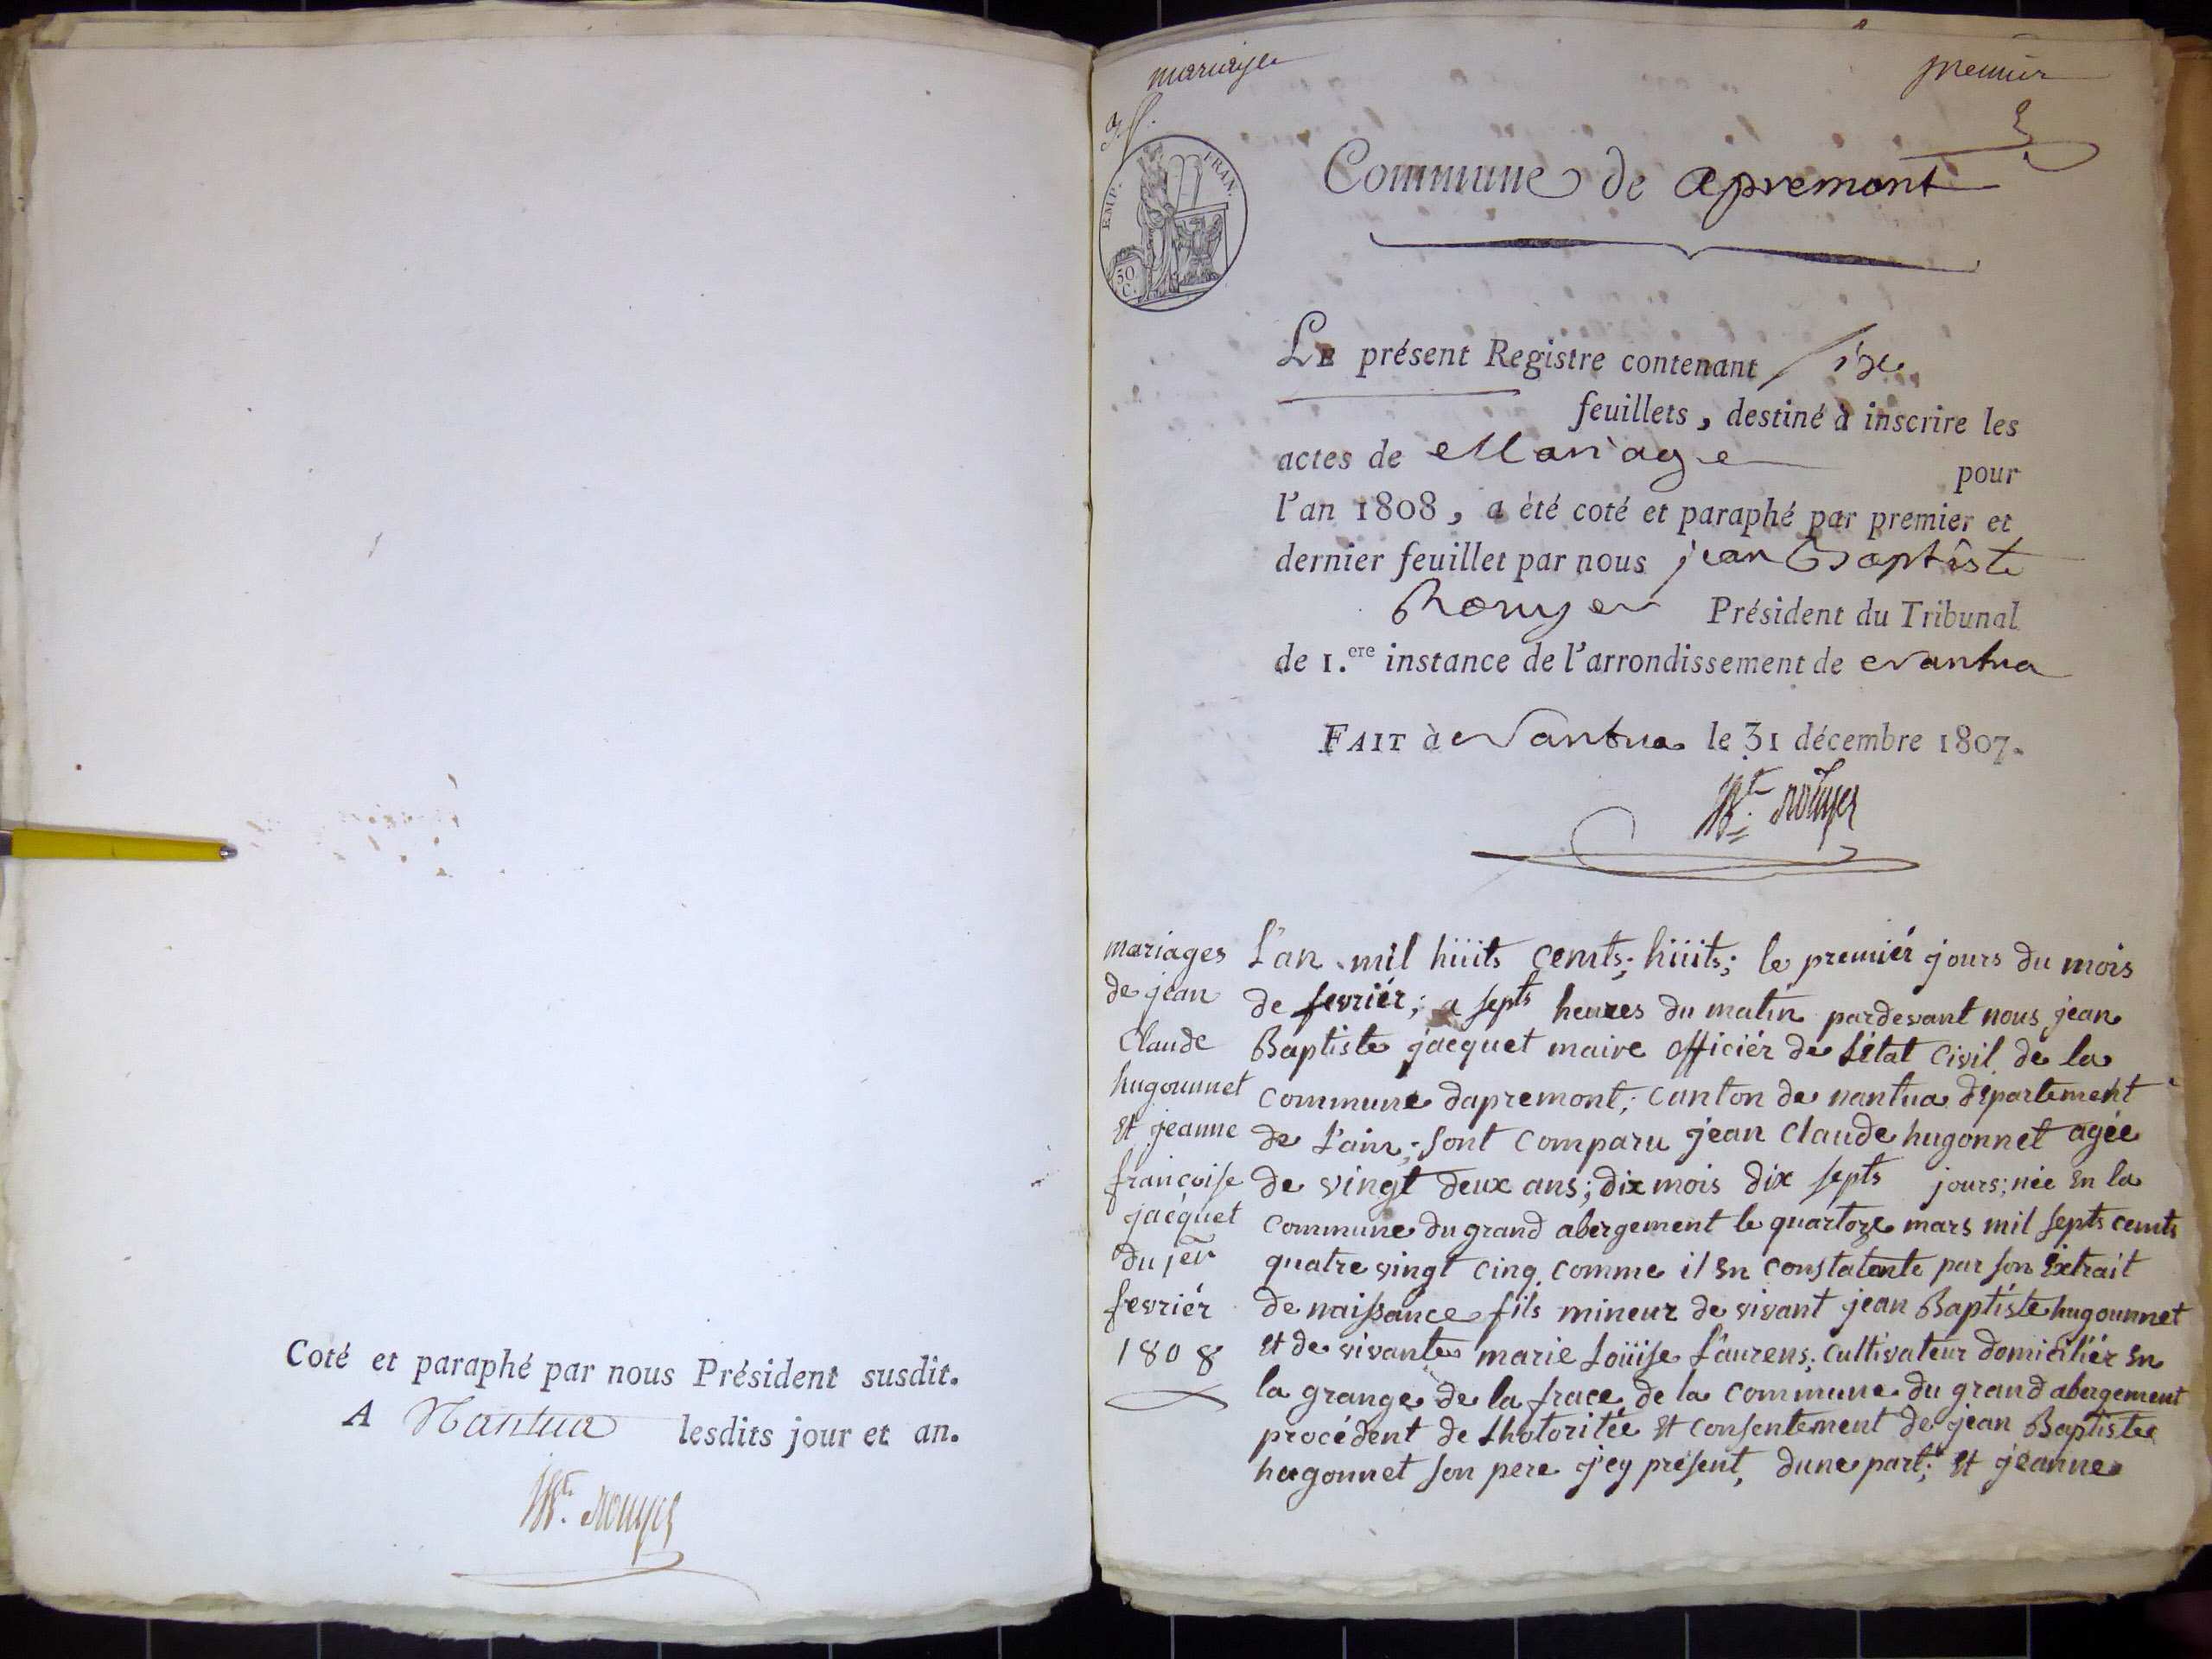 Coté et paraphé par nous Président susdit.
A Nantua lesdits jour et an.
Bte. rouyer
mariage
premier
EMP. FRAN.
50
C.
Commune de apremont
LE présent Registre contenant six
feuillets, destiné à inscrire les
actes de Mariage pour
l'an 1808, a été coté et paraphé par premier et
dernier feuillet par nous jean Baptiste
Rouyer Président du Tribunal
de 1.ere instance de l'arrondissement de Nantua
FAIT à Nantua le 31 décembre 1807.
Bte. rouyer
mariages
de jean
Claude
hugounnet
Et jeanne
françoise
jacquet
du 1er
fevriér
1808
L'an mil hüits cents; hüits; le premiér jours du mois
de fevriér; a septs heures du matin pardevant nous jean
Baptiste jacquet maire officiér de Létat Civil de la
Commune dapremont; canton de nantua département
de L'ain; sont comparu jean Claude hugonnet agée
de vingt deux ans; dix mois dix septs jours; née En la
commune du grand abergement le quartorze mars mil septs cents
quatre vingt cinq comme il En constatente par son Extrait
de naissance fils mineur de vivant jean Baptiste hugounnet
Et de vivante marie Loüise Laurens; Cultivateur domiciliér En
la grange de la frace de la commune du grand abergement
procédent de Lhotoritée Et consentement de jean Baptiste
hugonnet son pere j'ey présent, dune part; Et jeanne